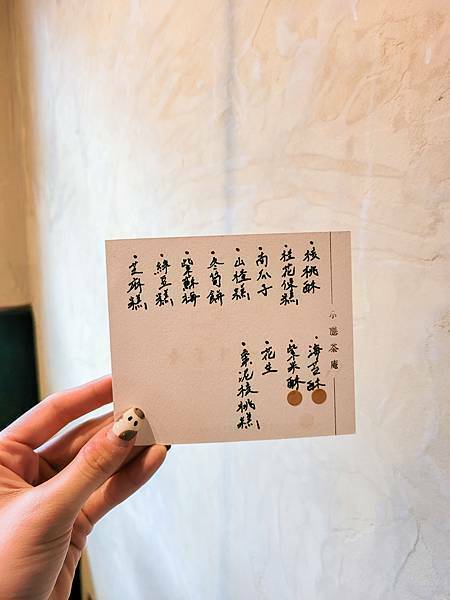 小隱茶庵
·核桃酥
·桂花倰糕
·南瓜子
·山楂糕
·冬筍餅
·紫蘇梅
·綠豆糕
·芝麻糕
·海苔酥
·紫米酥
·花生
·棗泥核桃糕